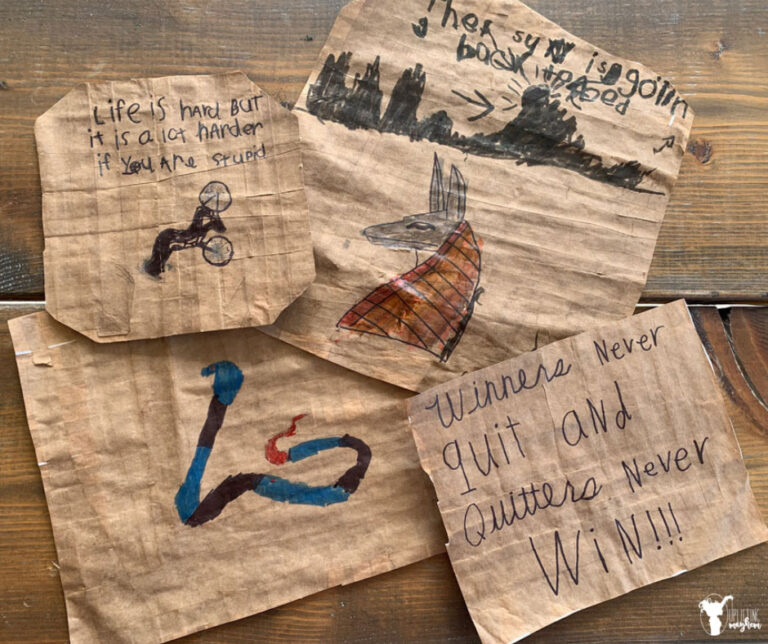 Life is hard BUT
it is a lot harder
if You Are stupid
is goin
Winners Never
quit and
Quitters Never
WiN!!!
UPLIFTING
mayhem